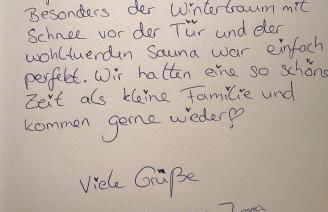 Besonders der Wintertraum mit
Schnee vor der Tür und der
wohltuenden Sauna war einfach
perfekt. Wir hatten eine so schöne
Zeit als kleine Familie und
kommen gerne wieder♡
Viele Grüße